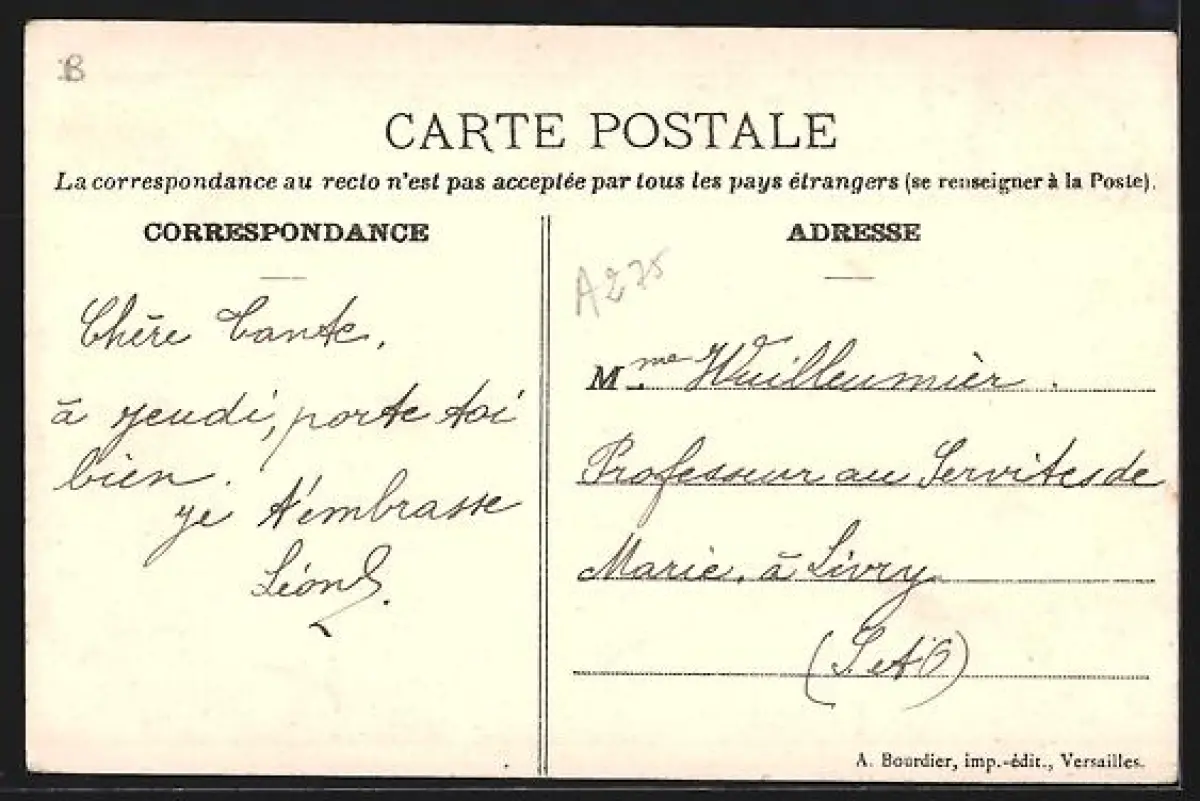 B
CARTE POSTALE
La correspondance au recto n'est pas acceptée par tous les pays étrangers (se renseigner à la Poste).
CORRESPONDANCE
Chère Tante,
à jeudi, porte toi
bien.
je t'embrasse
Léon
ADRESSE
A275
Mme Wuilleumièr.
Professeur au Servites de
Marie, à Livry
(S. et O)
A. Bourdier, imp.-édit., Versailles.